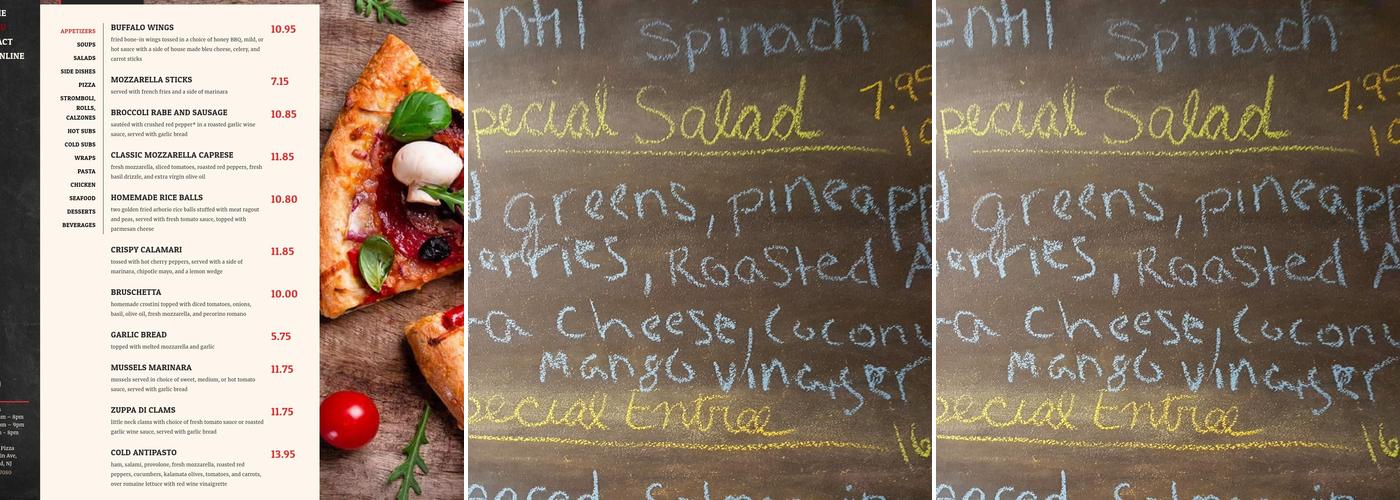 NE
ACT
NLINE
APPETIZERS
SOUPS
SALADS
SIDE DISHES
PIZZA
STROMBOLI,
ROLLS,
CALZONES
HOT SUBS
COLD SUBS
WRAPS
PASTA
CHICKEN
SEAFOOD
DESSERTS
BEVERAGES
BUFFALO WINGS 10.95
fried bone-in wings tossed in a choice of honey BBQ, mild, or
hot sauce with a side of house made bleu cheese, celery, and
carrot sticks
MOZZARELLA STICKS 7.15
served with french fries and a side of marinara
BROCCOLI RABE AND SAUSAGE 10.85
sautéed with crushed red pepper* in a roasted garlic wine
sauce, served with garlic bread
CLASSIC MOZZARELLA CAPRESE 11.85
fresh mozzarella, sliced tomatoes, roasted red peppers, fresh
basil drizzle, and extra virgin olive oil
HOMEMADE RICE BALLS 10.80
two golden fried arborio rice balls stuffed with meat ragout
and peas, served with fresh tomato sauce, topped with
parmesan cheese
CRISPY CALAMARI 11.85
tossed with hot cherry peppers, served with a side of
marinara, chipotle mayo, and a lemon wedge
BRUSCHETTA 10.00
homemade crostini topped with diced tomatoes, onions,
basil, olive oil, fresh mozzarella, and pecorino romano
GARLIC BREAD 5.75
topped with melted mozzarella and garlic
MUSSELS MARINARA 11.75
mussels served in choice of sweet, medium, or hot tomato
sauce, served with garlic bread
ZUPPA DI CLAMS 11.75
little neck clams with choice of fresh tomato sauce or roasted
garlic wine sauce, served with garlic bread
COLD ANTIPASTO 13.95
ham, salami, provolone, fresh mozzarella, roasted red
peppers, cucumbers, kalamata olives, tomatoes, and carrots,
over romaine lettuce with red wine vinaigrette
m – 8pm
m – 9pm
– 8pm
Pizza
in Ave,
d, NJ
7080
Spinach
pecial Salad 7.95
10
d greens, pineapp
erries, Roasted A
ta Cheese, Coconu
mango vinager
pecial Entrae
16
Salm in
Spinach
pecial Salad 7.9
10
d greens, pineapp
erries, Roasted A
ta Cheese, Coconu
mango vinager
pecial Entrae
16
Salm in